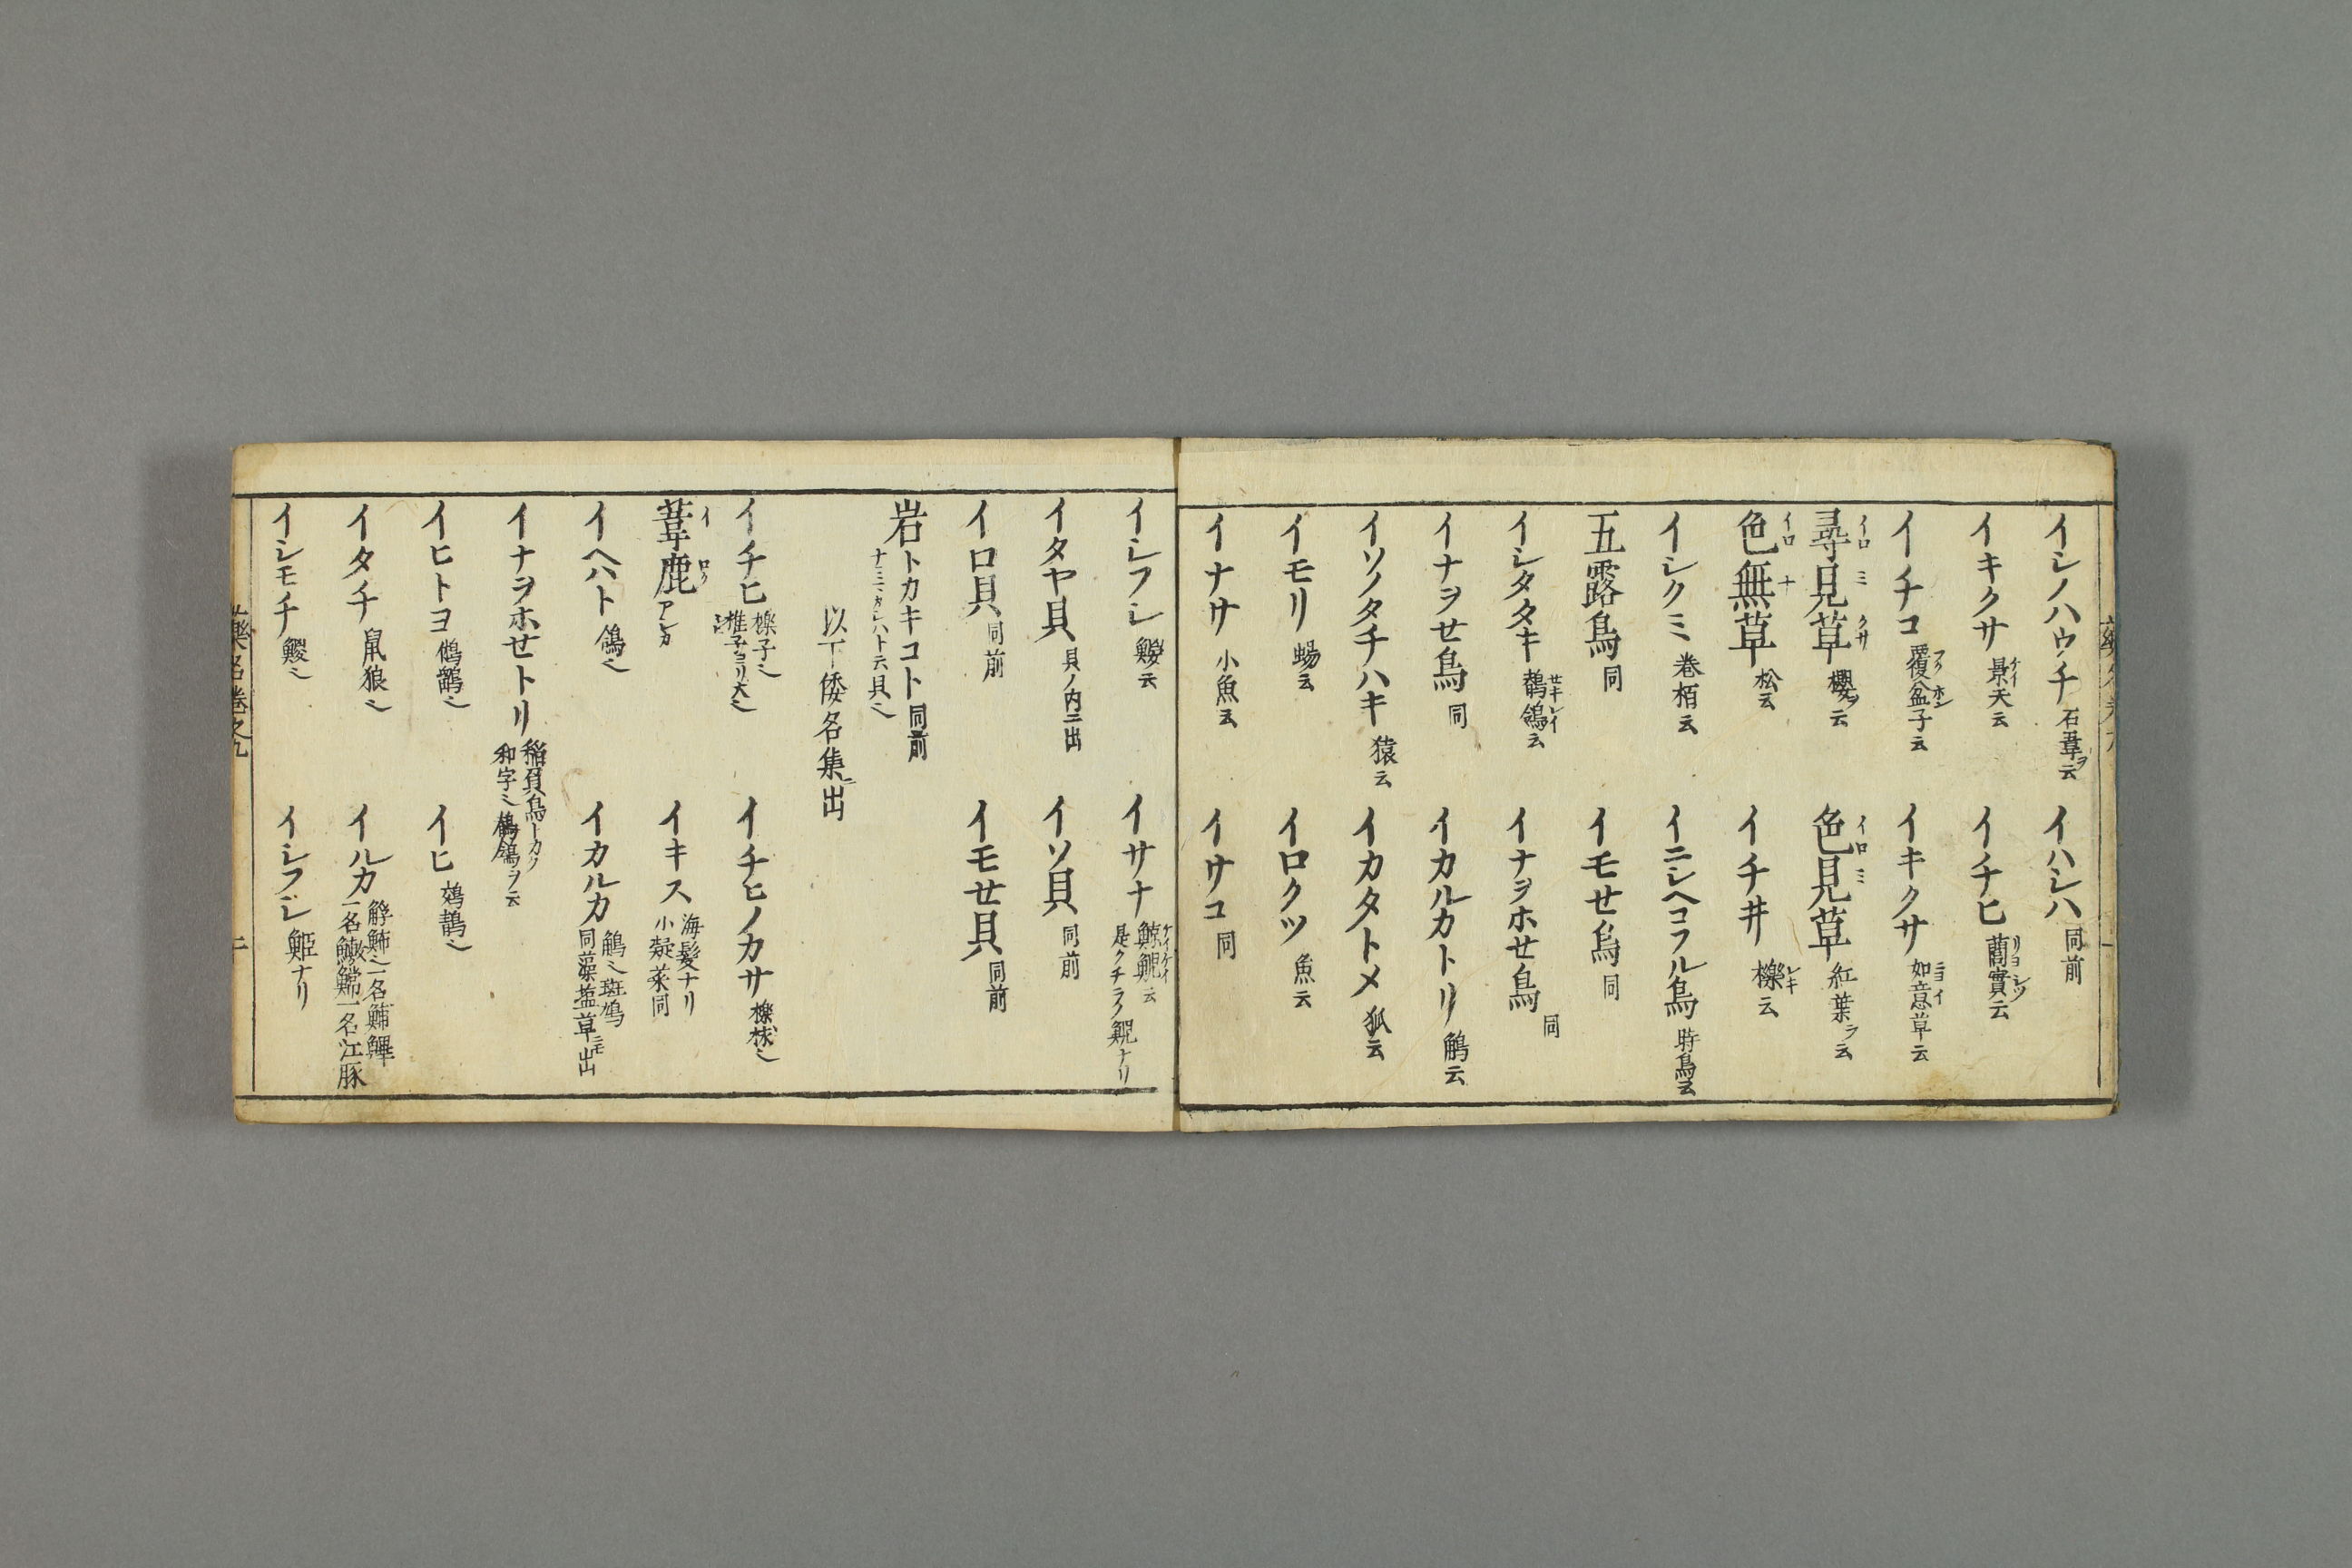 イシノハウノチ 石韋ヲ云
イハシハ 同前
イキクサ 景天云
イチヒ 藺實云
イチコ 覆盆子云
イキクサ 如意草云
尋見草 櫻ヲ云
色見草 紅葉ヲ云
色無草 松云
イチ井 櫟云
イシクミ 巻栢云
イニシヘコフル鳥 時鳥云
五露鳥 同
イモセ鳥 同
イシタタキ 鶺鴒云
イナヲホセ鳥 同
イナヲセ鳥 同
イカルカトリ 鵤云
イソノタチハキ 猿云
イカタトメ 狐云
イモリ 蝪云
イロクツ 魚云
イナサ 小魚云
イサコ 同
イシフシ 云
イサナ 鯨鯢云
是クチラノ鯢ナリ
イタヤ貝 貝ノ内ニ出
イソ貝 同前
イロ貝 同前
イモセ貝 同前
岩トカキコト 同前
以下倭名集ニ出
イチヒ 櫟子也
椎子ヨリ大也
イチヒノカサ 櫟梂也
葦鹿 アシカ
イキス 海髪ナリ
小凝菜同
イヘハト 鴿也
イカルカ 鵤也斑鳩
同藻塩草ニモ出
イナヲホセトリ 稲負鳥トカク
和字也鶺鴒ヲ云
イヒトヨ 鵂鶹也
イヒ
イタチ 鼠狼也
イルカ 一名江豚
イシモチ 鯼也
イシフシ ナリ
藥名巻之九
二